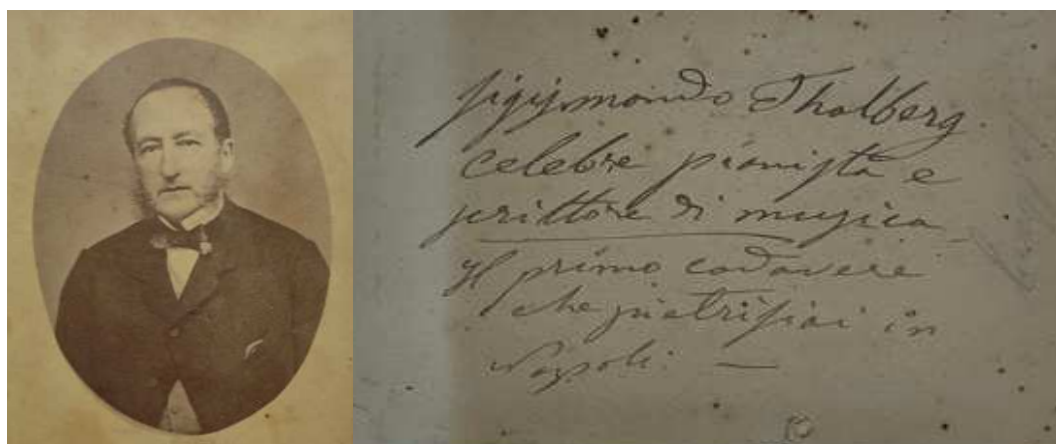 Sigismondo Thalberg
celebre pianista e
scrittore di musica
Il primo cadavere
che pietrificai in
Napoli. —